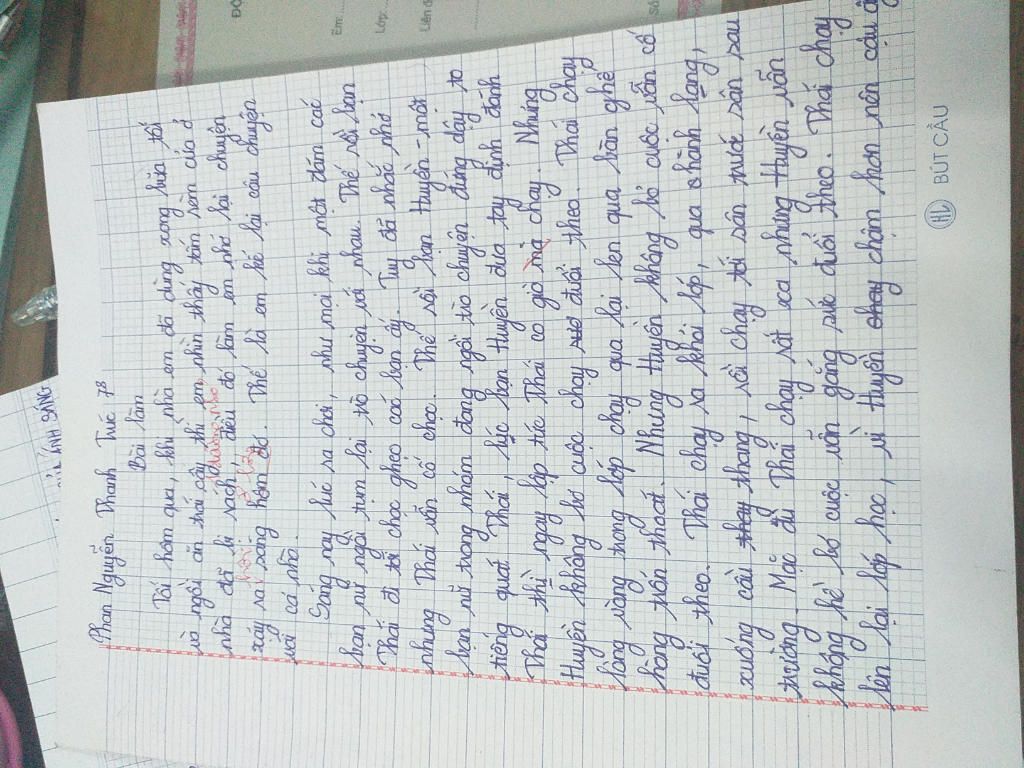 Phan Nguyễn Thanh Trúc 7B
Bài làm
Tối hôm qua, khi nhà em đã dùng xong bữa tối
và ngồi ăn trái cây thì em nhìn thấy tấm rèm cửa ở
nhà đã bị rách, điều đó làm em nhớ lại chuyện
xảy ra sáng hôm đó. Thế là em kể lại câu chuyện
với cả nhà.
Sáng nay lúc ra chơi, như mọi khi một đám các
bạn nữ ngồi tụm lại trò chuyện với nhau. Thế rồi bạn
Thái đi tới chọc ghẹo các bạn ấy. Tuy đã nhắc nhở
nhưng Thái vẫn cố chọc. Thế rồi bạn Huyền - một
bạn nữ trong nhóm đang ngồi trò chuyện đứng dậy to
tiếng quát Thái, lúc bạn Huyền đưa tay định đánh
Thái thì ngay lập tức Thái co giò mà chạy. Nhưng
Huyền không bỏ cuộc chạy đuổi theo. Thái chạy
lòng vòng trong lớp chạy qua lại len qua bàn ghế
hòng trốn thoát. Nhưng Huyền không bỏ cuộc vẫn cố
đuổi theo. Thái chạy ra khỏi lớp, qua hành lang,
xuống cầu thang, rồi chạy tới sân trước sân sau
trường. Mặc dù Thái chạy rất xa nhưng Huyền vẫn
không hề bỏ cuộc vẫn gắng sức đuổi theo. Thái chạy
lên lại lớp học, vì Huyền chạy chậm hơn nên cậu
BÚT CẦU
HL
Em:
Lớp:
Liên đ
Số
ÁNH SÁNG